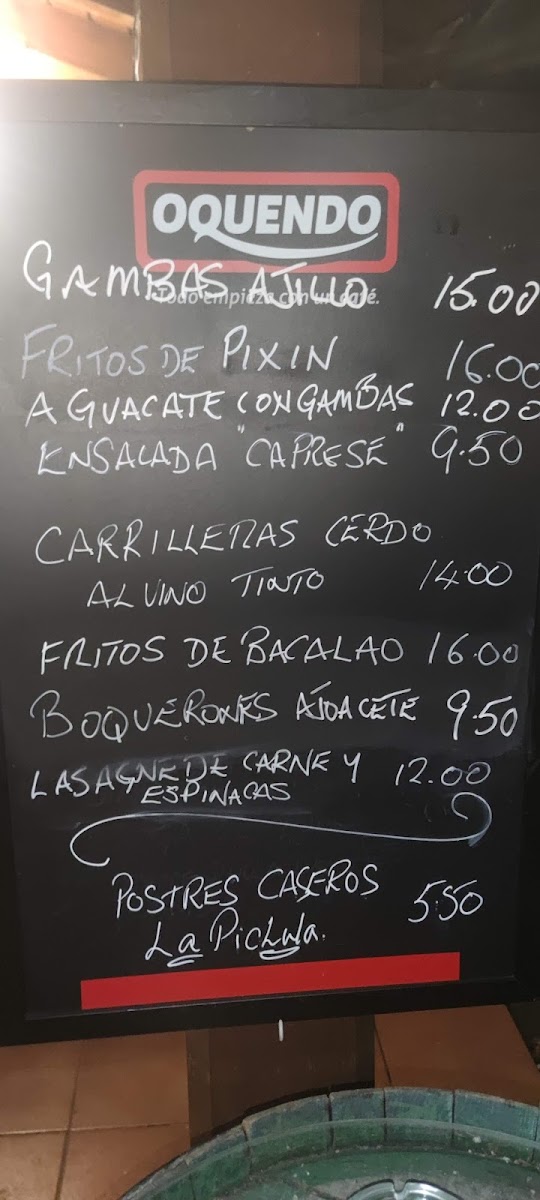 OQUENDO
Todo empieza con un café.
GAMBAS AJILLO 15.00
FRITOS DE PIXIN 16.00
AGUACATE CON GAMBAS 12.00
ENSALADA "CAPRESE" 9.50
CARRILLERAS CERDO
AL VINO TINTO 14.00
FRITOS DE BACALAO 16.00
BOQUERONES AJOACEITE 9.50
LASAGNE DE CARNE Y 12.00
ESPINACAS
POSTRES CASEROS 5.50
La Pichula.